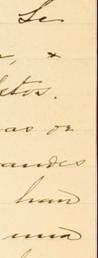 Se
r, x
etos.
as or
andes
han
una